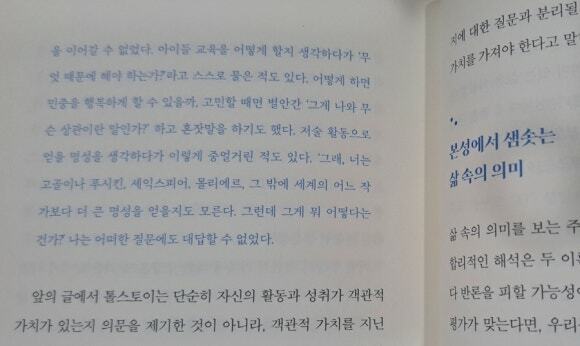 을 이어갈 수 없었다. 아이들 교육을 어떻게 할지 생각하다가 '무
엇 때문에 해야 하는가?'라고 스스로 물은 적도 있다. 어떻게 하면
민중을 행복하게 할 수 있을까, 고민할 때면 별안간 '그게 나와 무
슨 상관이란 말인가?' 하고 혼잣말을 하기도 했다. 저술 활동으로
얻을 명성을 생각하다가 이렇게 중얼거린 적도 있다. '그래, 너는
고골이나 푸시킨, 셰익스피어, 몰리에르, 그 밖에 세계의 어느 작
가보다 더 큰 명성을 얻을지도 모른다. 그런데 그게 뭐 어떻다는
건가?' 나는 어떠한 질문에도 대답할 수 없었다.
앞의 글에서 톨스토이는 단순히 자신의 활동과 성취가 객관적
가치가 있는지 의문을 제기한 것이 아니라, 객관적 가치를 지닌
지에 대한 질문과 분리될
가치를 가져야 한다고 말
본성에서 샘솟는
삶 속의 의미
삶 속의 의미를 보는 주
합리적인 해석은 두 이론
다 반론을 피할 가능성이
평가가 맞는다면, 우리는